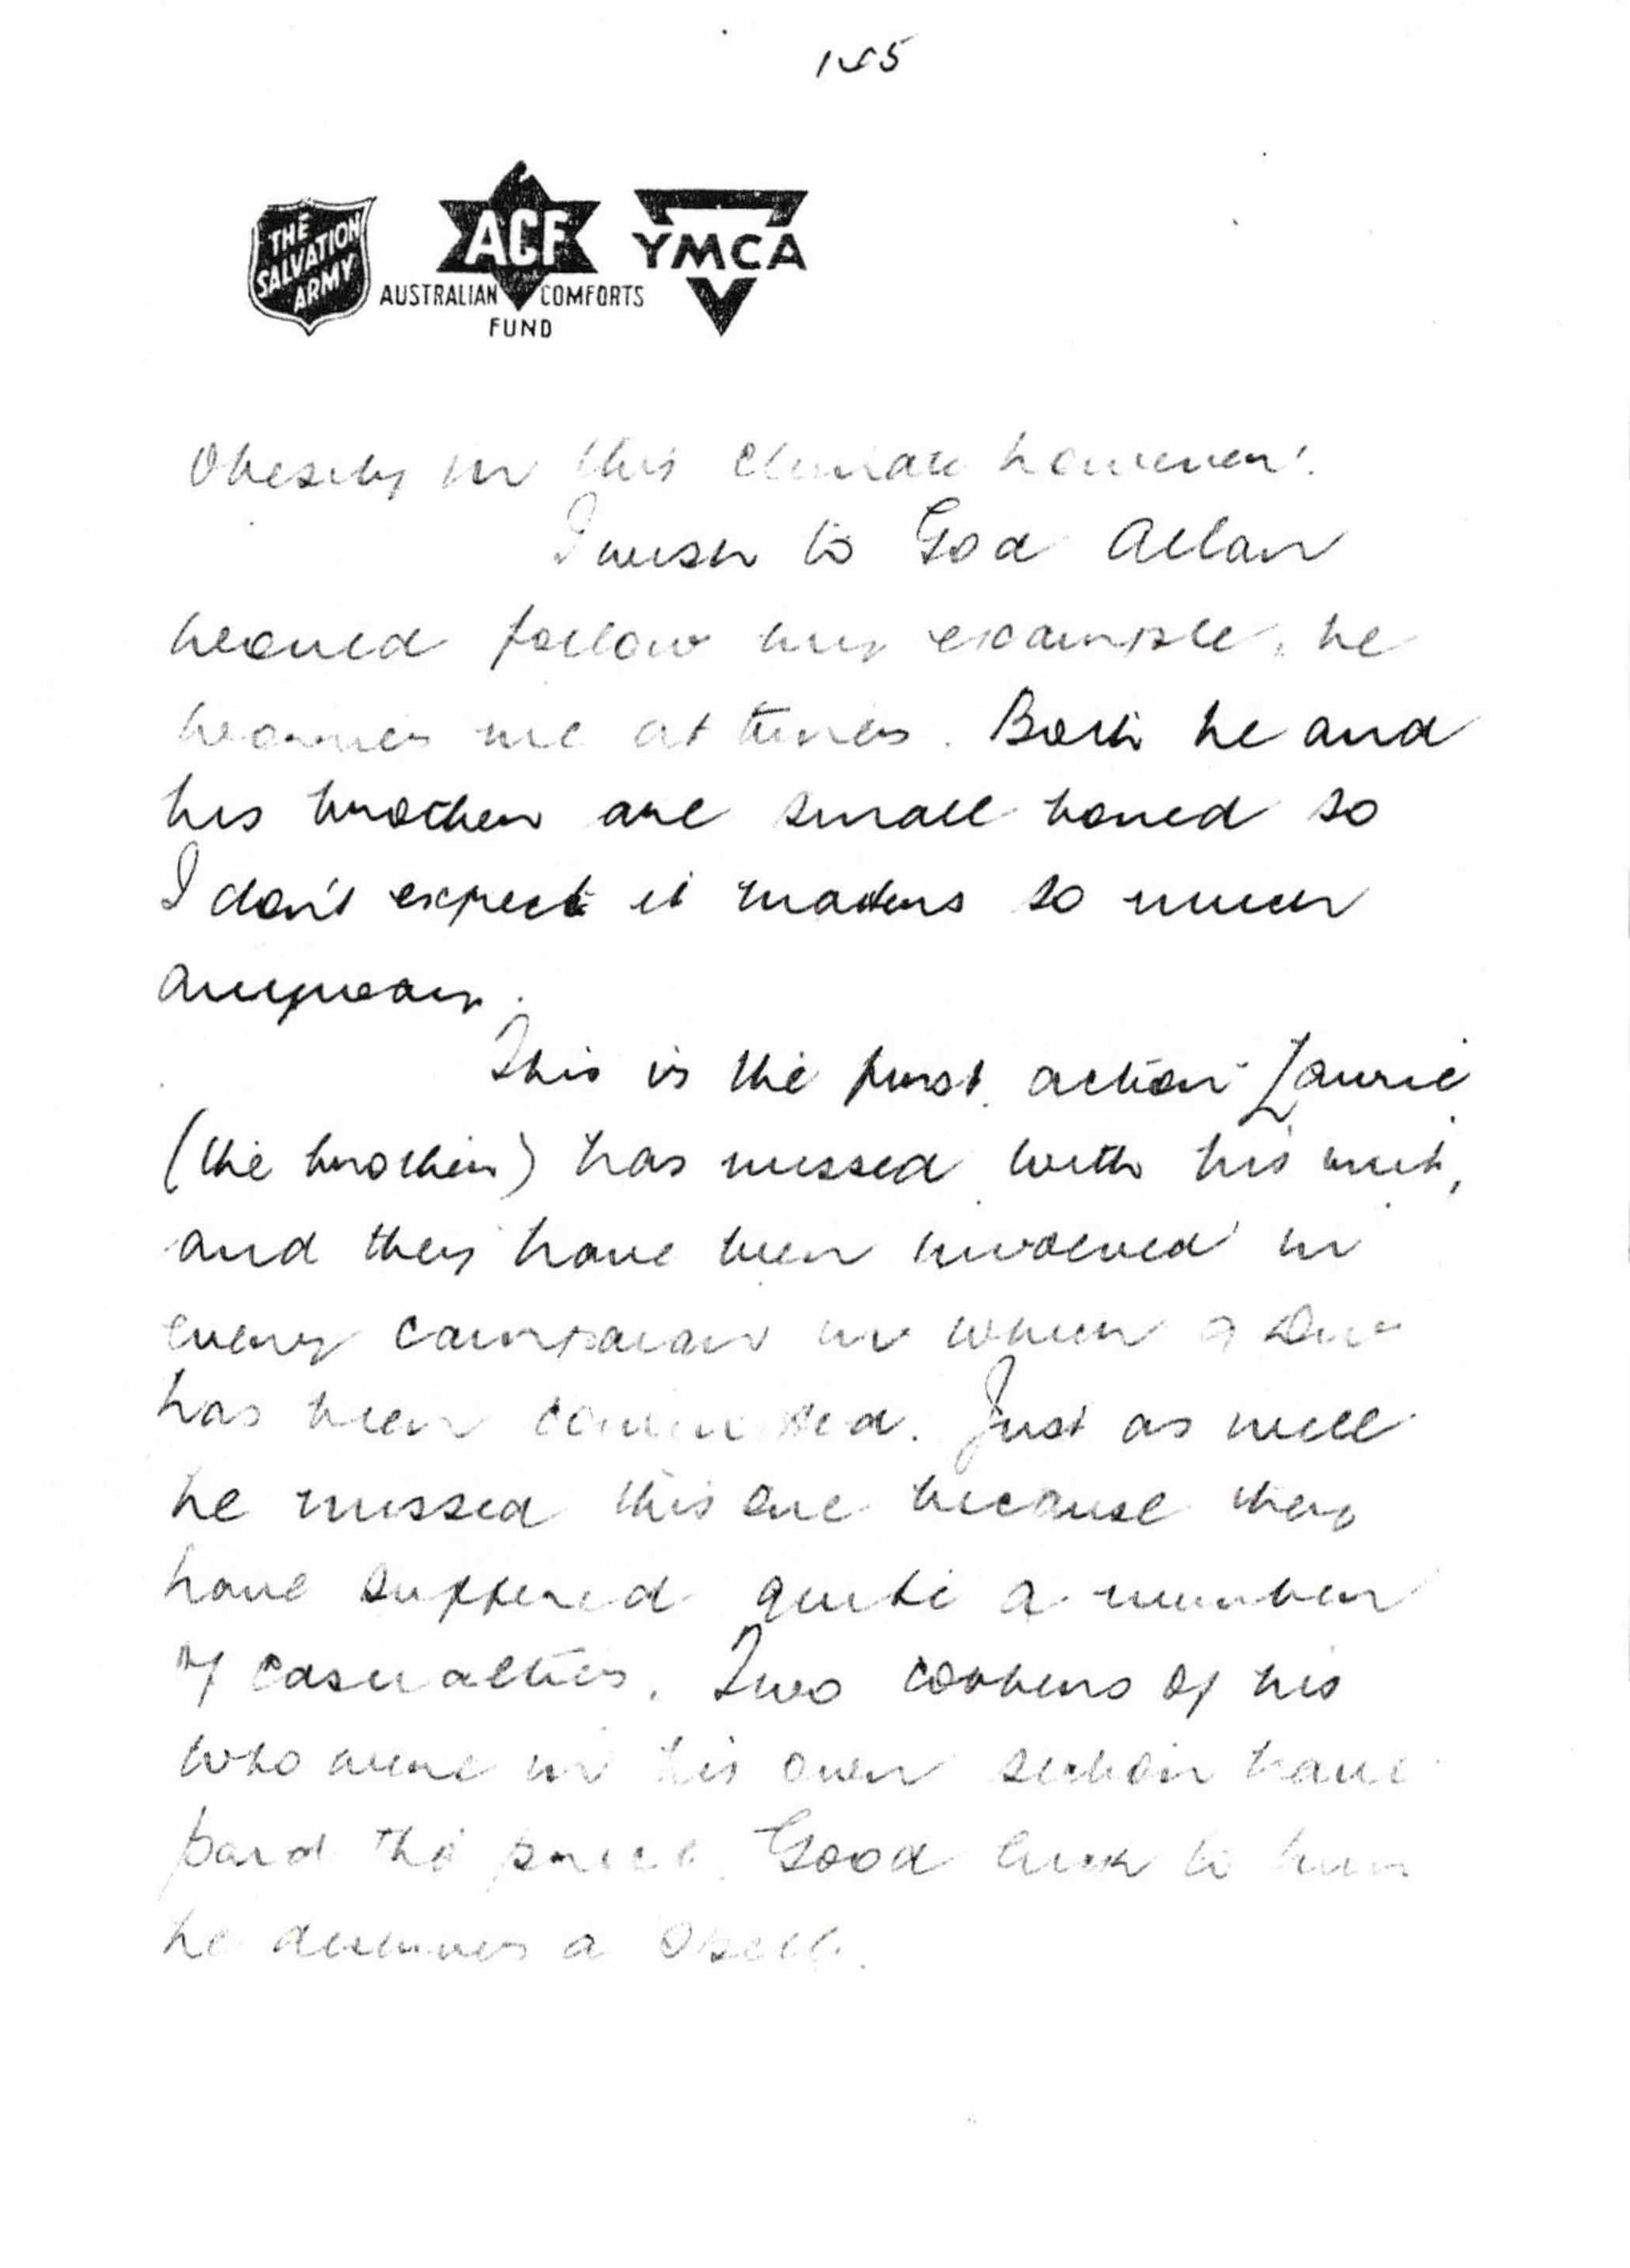 185
THE
SALVATION
ARMY
ACF
AUSTRALIAN COMFORTS
FUND
YMCA
Obesity in this climate however!
I wish to God Allan
would follow my example, he
worries me at times. Both he and
his brother are small boned so
I don't expect it matters so much
anyway.
This is the first action Laurie
(the brother) has missed with his unit,
and they have been involved in
every campaign in which 9 Div
has been committed. Just as well
he missed this one because they
have suffered quite a number
of casualties. Two cobbers of his
who were in his own section have
paid the price. Good luck to him
he deserves a spell.